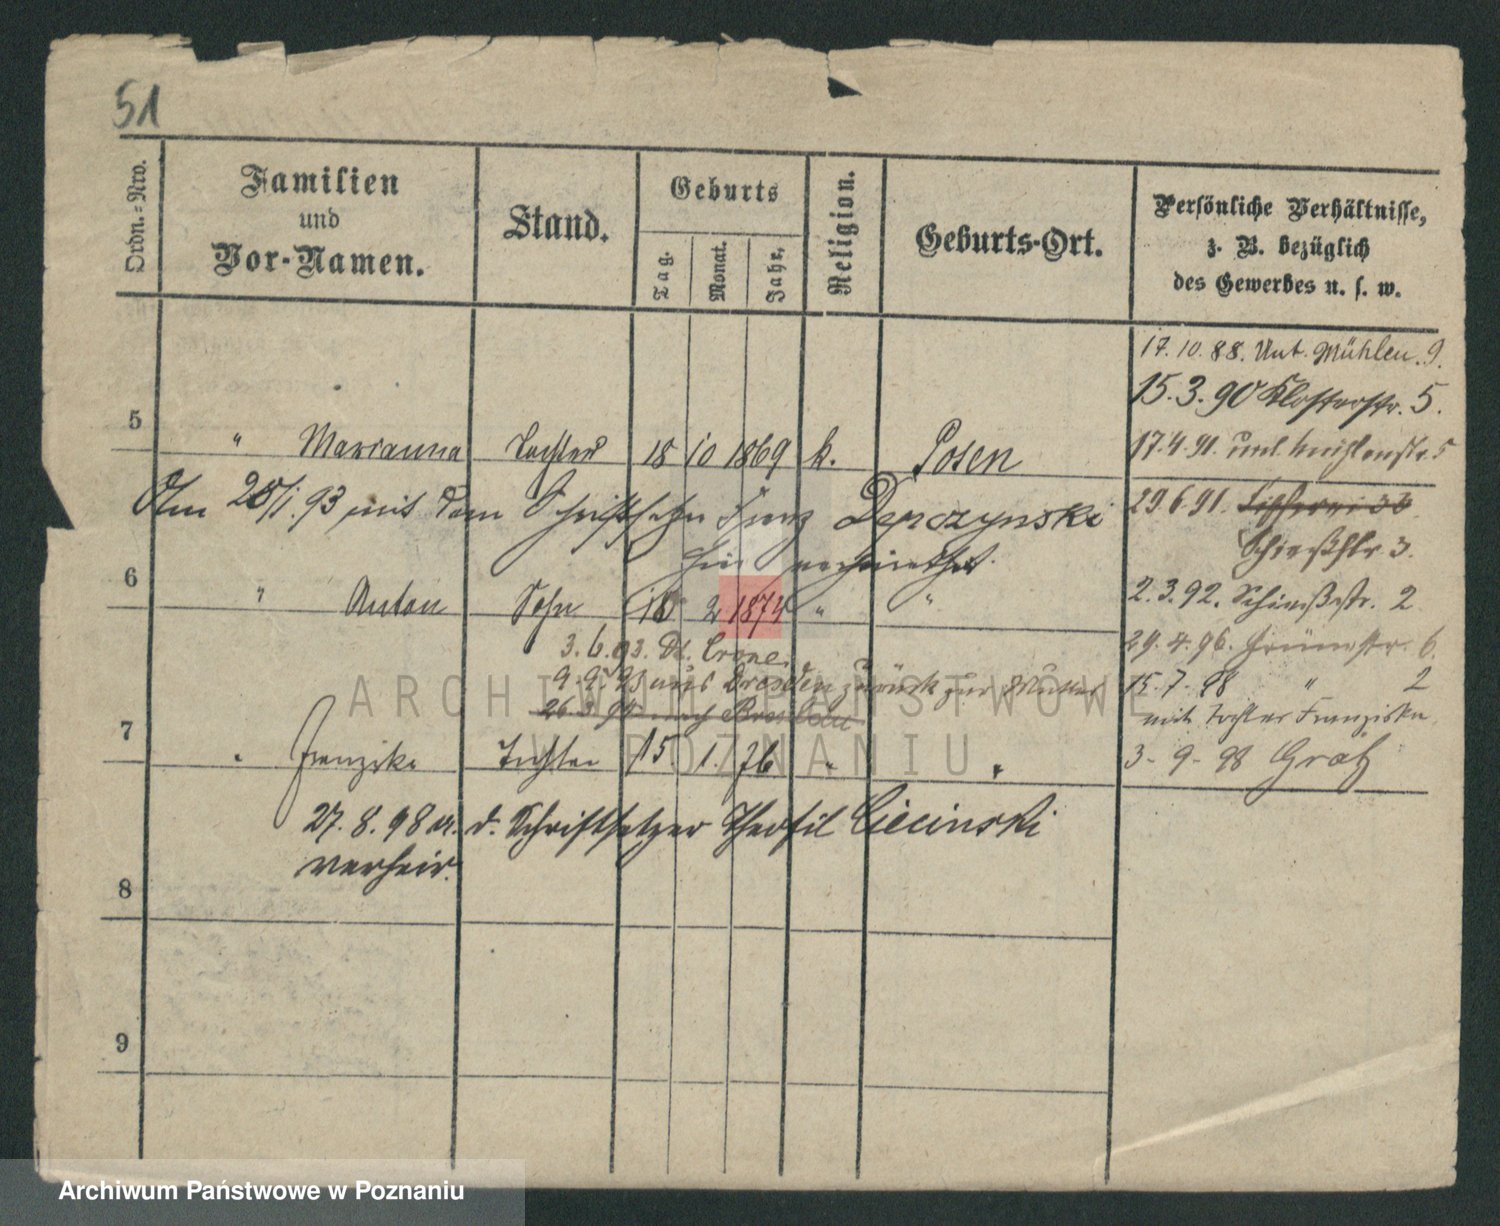 51
Ordn.=Nro.
Familien
und
Vor-Namen.
Stand.
Geburts
Tag.
Monat.
Jahr.
Religion.
Geburts-Ort.
Persönliche Verhältnisse,
z. B. bezüglich
des Gewerbes u. s. w.
17. 10. 88. Unt. Mühlen. 9.
15. 3. 90 Klosterstr. 5.
5 " Marianna Tochter 18 10 1869 k. Posen
17.4.91. unt. Mühlenstr. 5
Am 25/1. 93 mit dem Schriftsetzer Franz Depczynski
hier verheirathet.
29.6.91. Fischerei
Schießstr. 3.
6 " Anton Sohn 18 2 1874 " "
2. 3. 92. Schießstr. 2
3. 6. 93. Dt. Crone.
29. 4. 96. Grünestr. 6.
9. 9. 93 aus Dresden zurück zur Mutter
15. 7. 98 " 2
26. 3. 94 nach Breslau
mit Tochter Franziska
7 " Franziska Tochter 15. 1. 76 " "
3. 9. 98 Grätz
27. 8. 98 a. d. Schriftsetzer Theofil Ciecinski
verheir.
8
9
ARCHIWUM PAŃSTWOWE
W POZNANIU
Archiwum Państwowe w Poznaniu